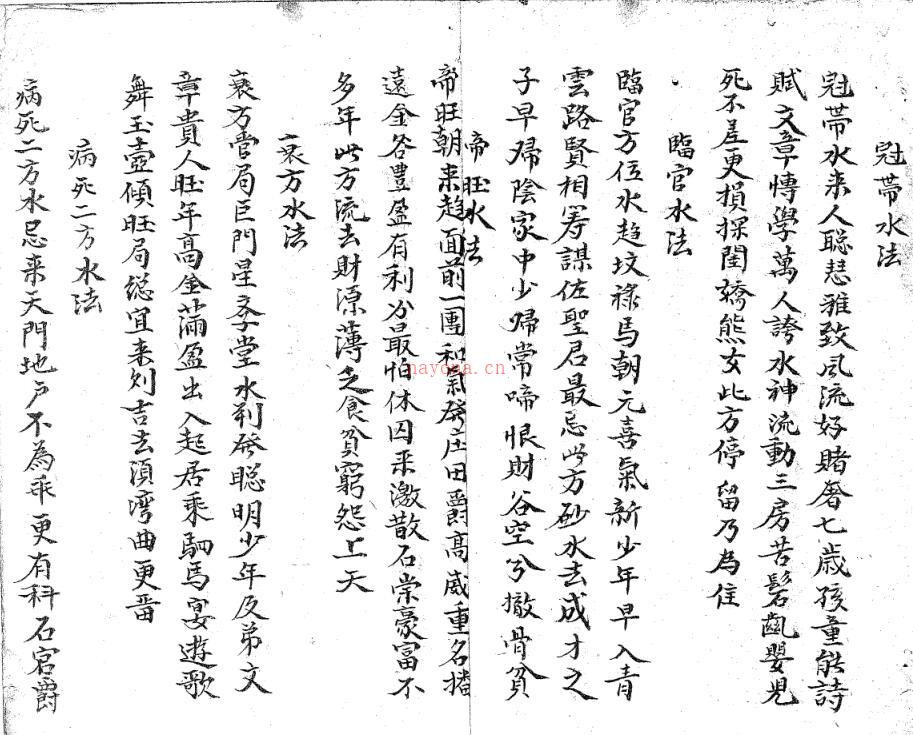 冠帶水法
冠帶水来人聪慧雅致风流好賭奢七歲孩童能詩
賦文章慱學萬人誇水神流動三房苦髫齓嬰児
死不差更損探閨嬌熊女此方停留乃為住
臨官水法
臨官方位水趋坟祿马朝元喜氣新少年早入青
雲路賢相筹謀佐聖君最忌此方砂水去成才之
子早歸陰家中少婦常啼恨財谷空兮撤骨貧
帝旺水法
帝旺朝来趋面前一團和氣發庄田爵高威重名播
遠金谷豊盈有利㕣最怕休囚来激散石崇豪富不
多年此方流去財源薄乏食貧窮怨上天
衰方水法
衰方管局巨門星孝堂水到發聪明少年及弟文
章貴人旺年高金滿盈出入起居乘駟馬宴遊歌
舞玉壺傾旺局總宜来则吉去須灣曲更
病死二方水法
病死二方水忌来天門地户不為乖更有科名官爵
nayona.cn